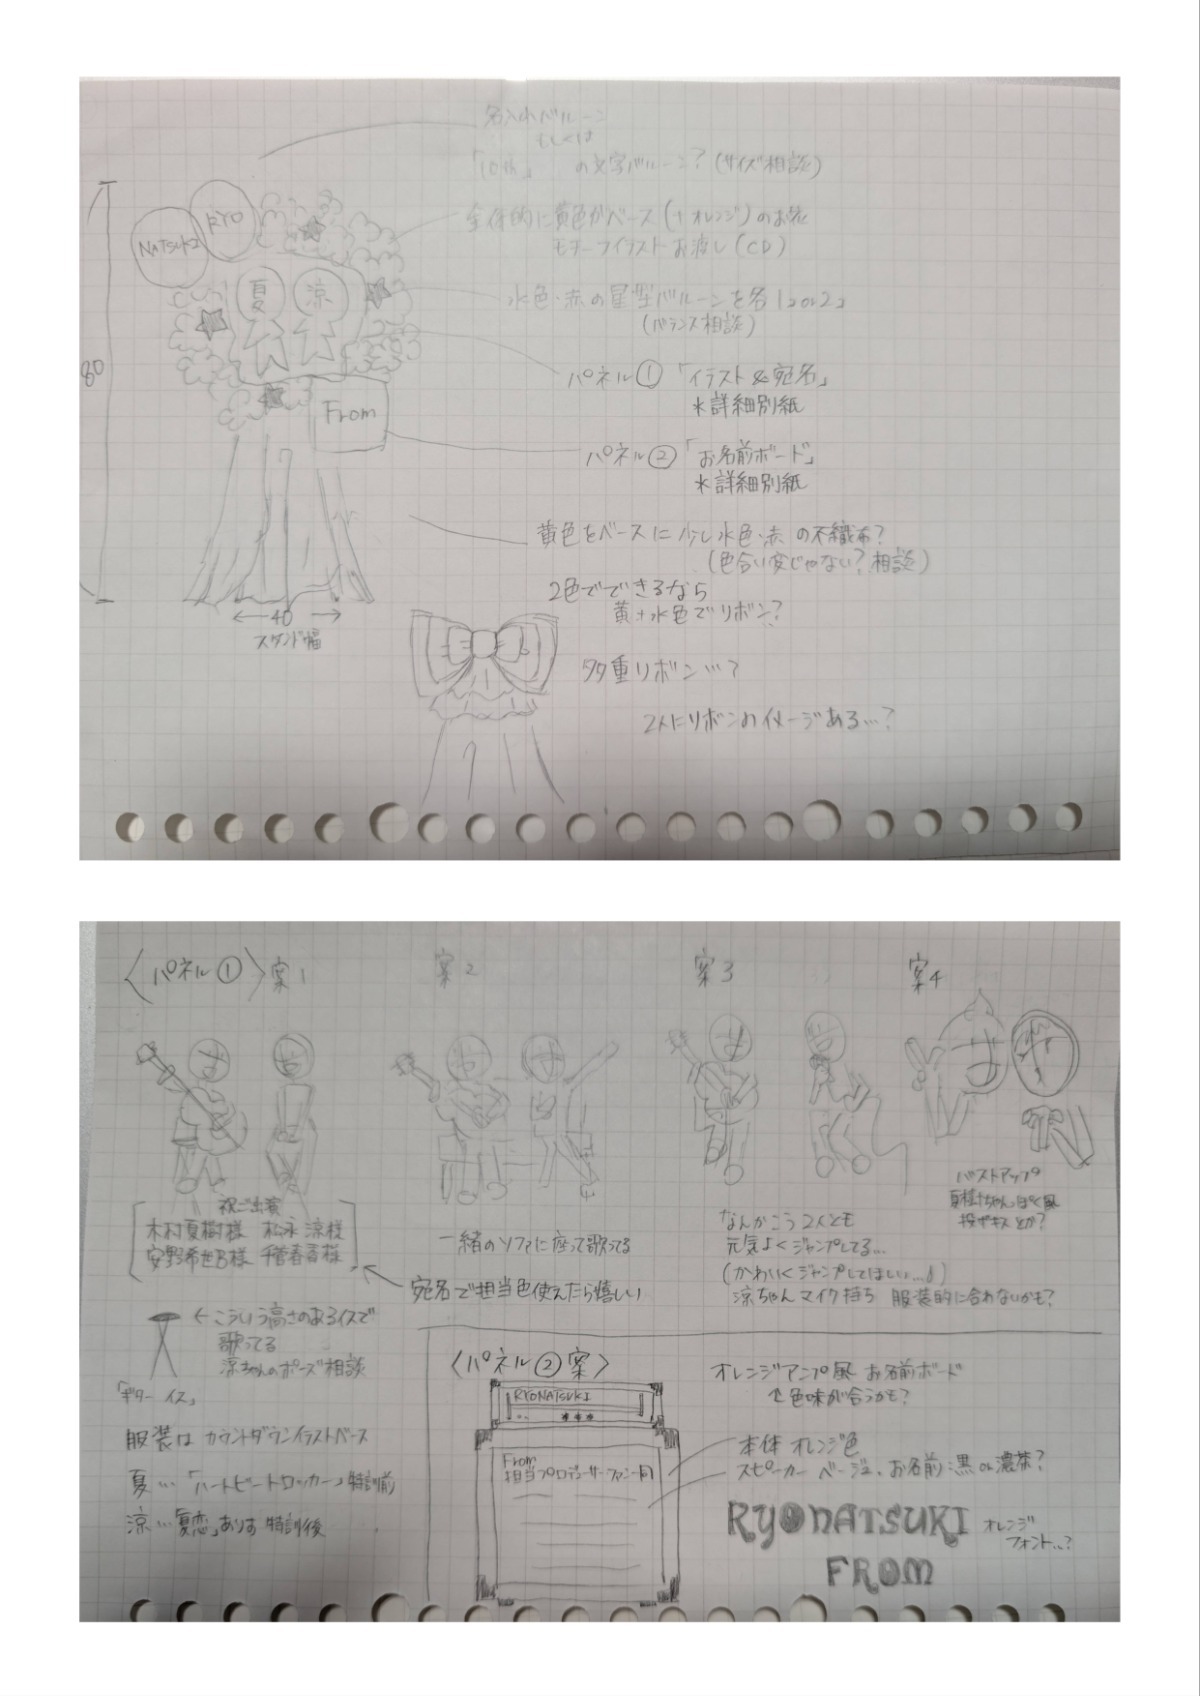 名入れバルーン
もしくは
「10th」 の文字バルーン?(サイズ相談)
全体的に黄色がベース(+オレンジ)のお花
モチーフイラストお渡し(CD)
NATSUKI
RYO
夏
涼
水色・赤の星型バルーンを各1or2コ
(バランス相談)
パネル①「イラスト&宛名」
*詳細別紙
80
From
パネル②「お名前ボード」
*詳細別紙
黄色をベースに少し水色・赤の不織布?
(色合い変じゃない?相談)
2色でできるなら
黄+水色でリボン?
←40→
スタンド幅
多重リボン…?
2人にリボンのイメージある…?
〈パネル①〉案1
案2
案3
案4
祝ご出演
木村夏樹様 松永涼様
安野希世乃様 千菅春香様
一緒のソファに座って歌ってる
宛名で担当色使えたら嬉しい
なんかこう2人とも
元気よくジャンプしてる…
(かわいくジャンプしてほしい…♪)
涼ちゃんマイク持ち 服装的に合わないかも?
バストアップ
夏樹ちゃんっぽく風
投げキスとか?
←こういう高さのあるイスで
歌ってる
涼ちゃんのポーズ相談
「ギター イス」
服装はカウントダウンイラストベース
夏…「ハートビートロッカー」特訓前
涼…「夏恋」ありす特訓後
〈パネル②案〉
RYONATSUKI
From
担当プロデューサー・ファン一同
オレンジアンプ風お名前ボード
色味が合うかも?
本体 オレンジ色
スピーカー ベージュ、お名前:黒or濃茶?
RYONATSUKI
FROM
オレンジ
フォント…?